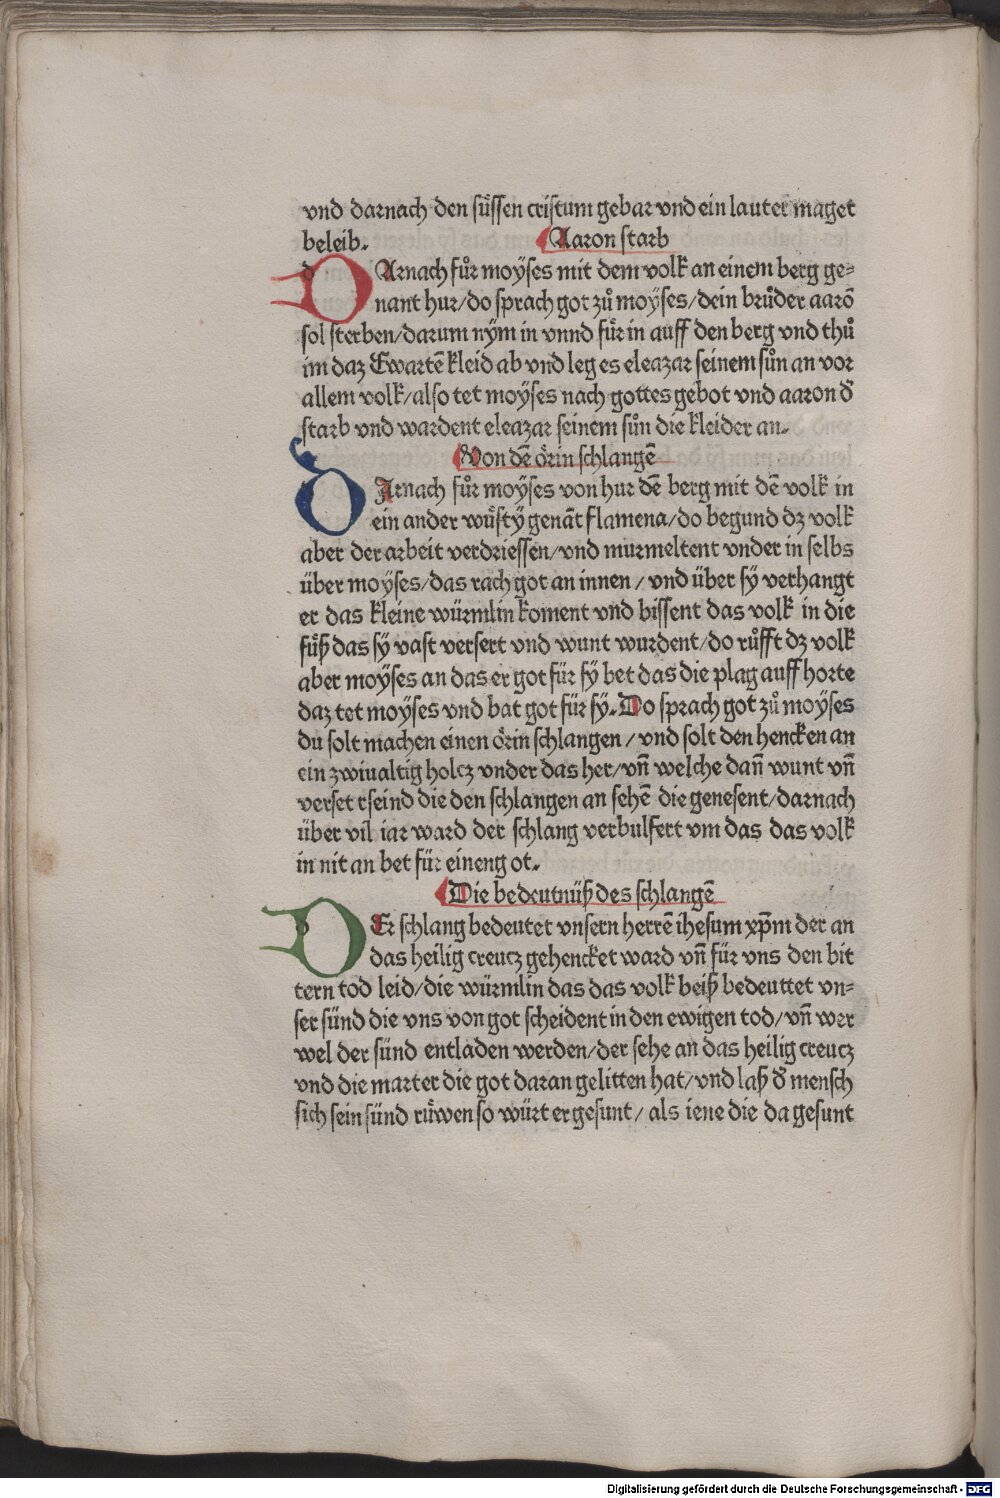 vnd darnach den suͤssen cristum gebar vnd ein lauter maget
beleib.
Aaron starb
DArnach fuͦr moÿses mit dem volk an einem berg ge⸗
nant hur/do sprach got zuͦ moÿses/dein bruͦder aarō
sol sterben/darum nÿm in vnnd fuͤr in auff den berg vnd thuͦ
im daz Ewartē kleid ab vnd leg es eleazar seinem suͦn an vor
allem volk/also tet moÿses nach gottes gebot vnd aaron d̄
starb vnd wardent eleazar seinem suͦn die kleider an.
Von dē oͤrin schlangē
DArnach fuͦr moÿses von hur dē berg mit dē volk in
ein ander wuͤstÿ genāt flamena/do begund dz volk
aber der arbeit verdriessen/vnd murmeltent vnder in selbs
über moÿses/das rach got an innen/vnd über sÿ verhangt
er das kleine würmlin koment vnd bissent das volk in die
fuͤß das sÿ vast versert vnd wunt wurdent/do ruͦfft dz volk
aber moÿses an das er got für sÿ bet das die plag auff horte
daz tet moÿses vnd bat got für sÿ. Do sprach got zuͦ moÿses
du solt machen einen oͤrin schlangen/vnd solt den hencken an
ein zwiualtig holcz vnder das her/vn̄ welche dan̄ wunt vn̄
verset rseind die den schlangen an sehē die genesent/darnach
über vil iar ward der schlang verbulfert vm das das volk
in nit an bet für eineng ot.
Die bedeutnüß des schlangē
DEr schlang bedeutet vnsern herrē ihesum xp̄m der an
das heilig creucz gehencket ward vn̄ für vns den bit
tern tod leid/die würmlin das das volk beiß bedeuttet vn⸗
ser sünd die vns von got scheident in den ewigen tod/vn̄ wer
wel der sünd entladen werden/der sehe an das heilig creucz
vnd die marter die got daran gelitten hat/vnd laß d̄ mensch
sich sein sünd ruͤwen so würt er gesunt/als iene die da gesunt
Digitalisierung gefördert durch die Deutsche Forschungsgemeinschaft - DFG